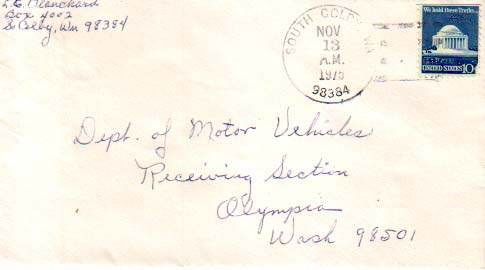 L.C. Blanchard
Box 4002
So Colby, Wn 98384
SOUTH COLBY, WA
NOV
13
A.M.
1975
98384
We hold these Truths...
UNITED STATES 10c
Dept. of Motor Vehicles
Receiving Section
Olympia
Wash 98501